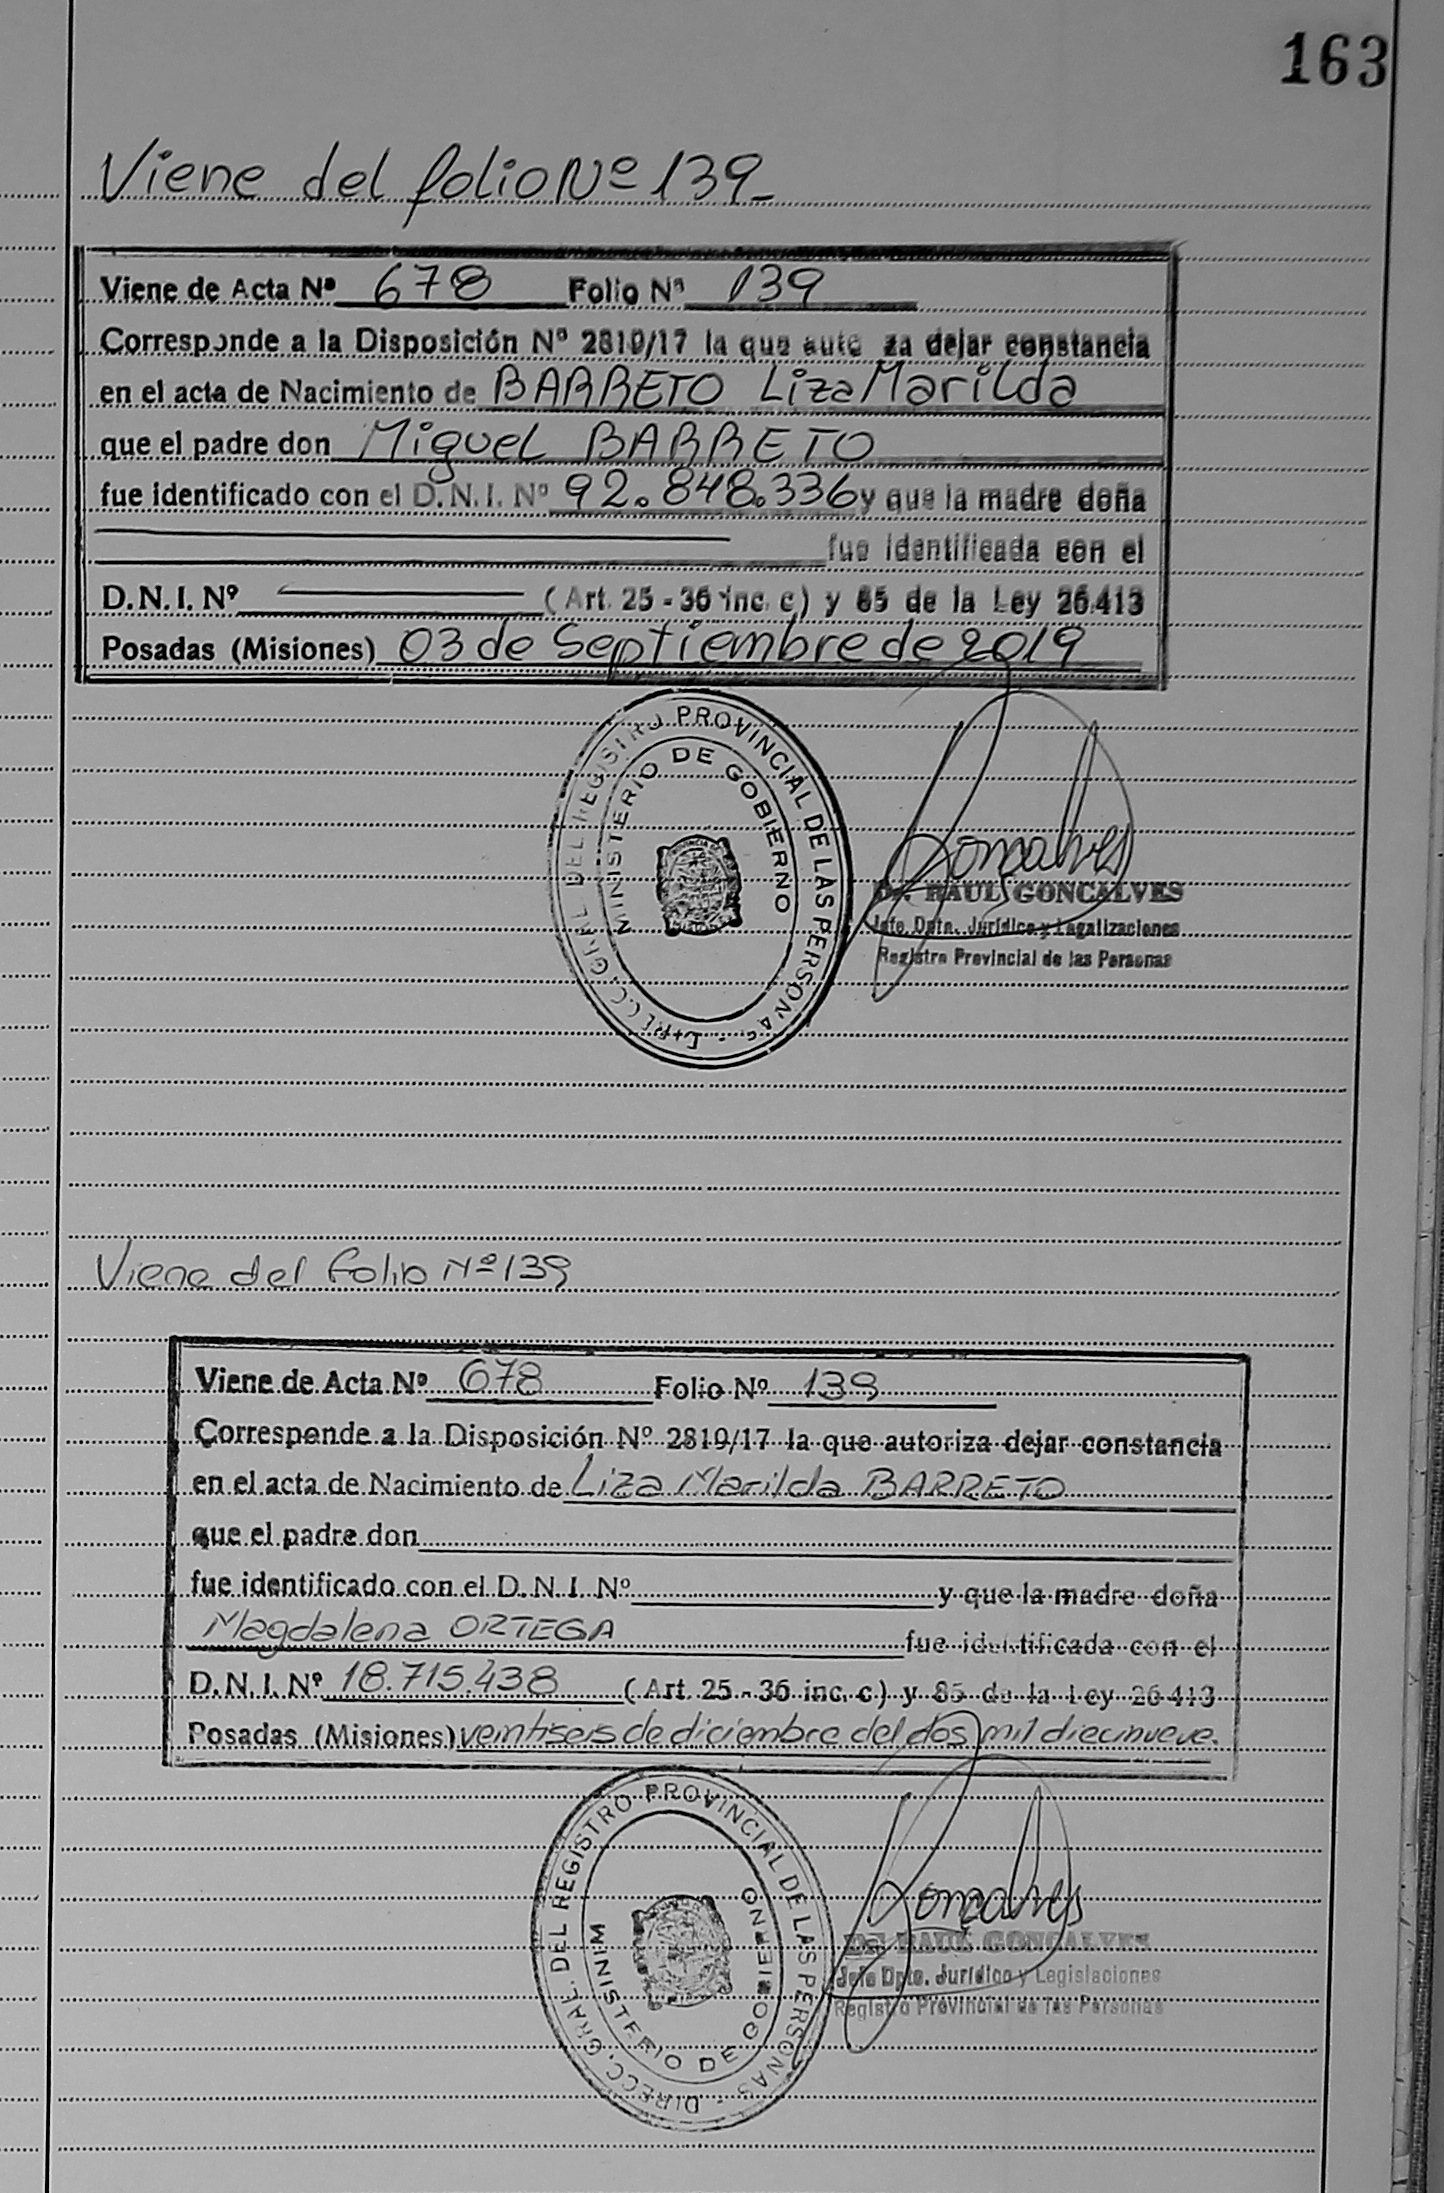 163
Viene del folio Nº 139_
Viene de Acta Nº 678 Folio Nº 139
Corresponde a la Disposición Nº 2819/17 la que auto za dejar constancia
en el acta de Nacimiento de BARRETO Liza Marilda
que el padre don Miguel BARRETO
fue identificado con el D.N.I. Nº 92.848.336 y que la madre doña
fue identificada con el
D.N.I. Nº ( Art. 25 - 36 inc. c) y 85 de la Ley 26.413
Posadas (Misiones) 03 de Septiembre de 2019
DIRECC. GRAL. DEL REGISTRO PROVINCIAL DE LAS PERSONAS
MINISTERIO DE GOBIERNO
Goncalves
Dr. RAUL GONCALVES
Jefe Dpto. Jurídico y Legalizaciones
Registro Provincial de las Personas
Viene del folio Nº 139
Viene de Acta Nº 678 Folio Nº 139
Corresponde a la Disposición Nº 2819/17 la que autoriza dejar constancia
en el acta de Nacimiento de Liza Marilda BARRETO
que el padre don
fue identificado con el D.N.I. Nº y que la madre doña
Magdalena ORTEGA fue identificada con el
D.N.I. Nº 18.715.438 ( Art. 25 - 36 inc. c) y 85 de la Ley 26.413
Posadas (Misiones) veintiseis de diciembre del dos mil diecinueve.
DIRECC. GRAL. DEL REGISTRO PROVINCIAL DE LAS PERSONAS
MINISTERIO DE GOBIERNO
Goncalves
Dr. RAUL GONCALVES
Jefe Dpto. Jurídico y Legislaciones
Registro Provincial de las Personas